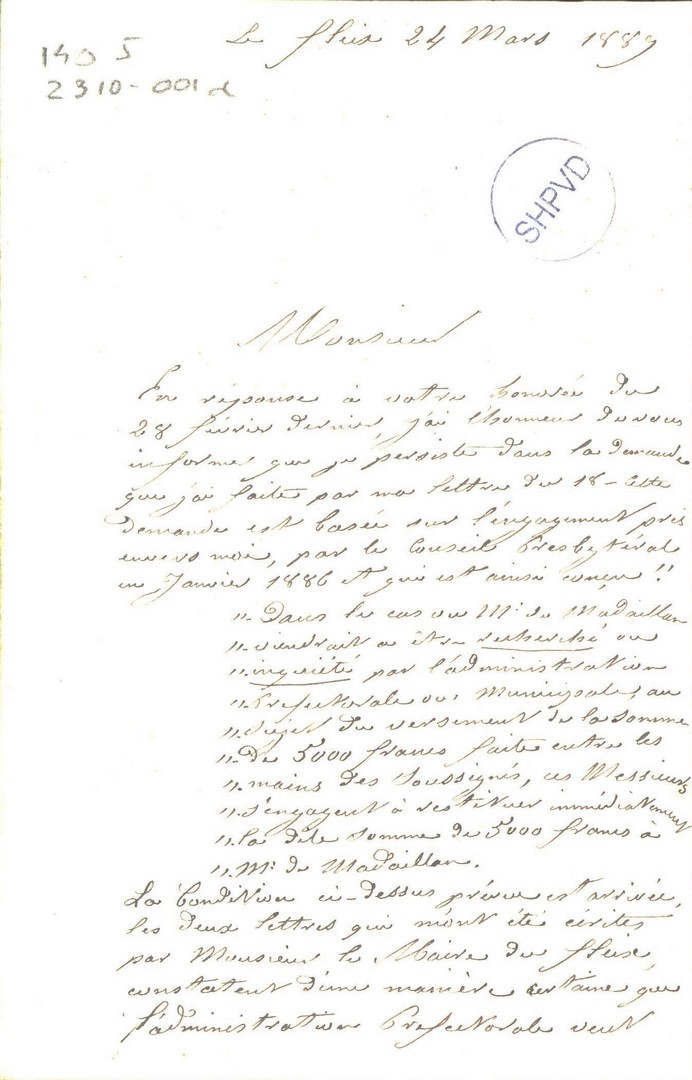 Le fleix 24 Mars 1889
140 5
2310-001 d
SHPVD
Monsieur
En réponse à votre honorée du
28 février dernier, j'ai l'honneur de vous
informer que je persiste dans la demande
que j'ai faite par ma lettre du 18 - cette
demande est basée sur l'engagement pris
envers moi, par le Conseil Presbytéral
en Janvier 1886 et qui est ainsi conçu !!
" Dans le cas ou Mr. de Madaillan
" viendrait a être recherché ou
" inquiété par l'administration
" Prefectorale ou Municipale, au
" Sujet du versement de la somme
" De 5000 francs faite entre les
" mains des Soussignés, ces Messieurs
" s'engagent à restituer immédiatement
" la dite somme de 5000 francs à
" Mr. de Madaillan.
La Condition ci-dessus prévue est arrivée,
les deux lettres qui m'ont été écrites
par Monsieur le Maire du fleix
constatent d'une manière certaine que
l'administration Prefectorale veut